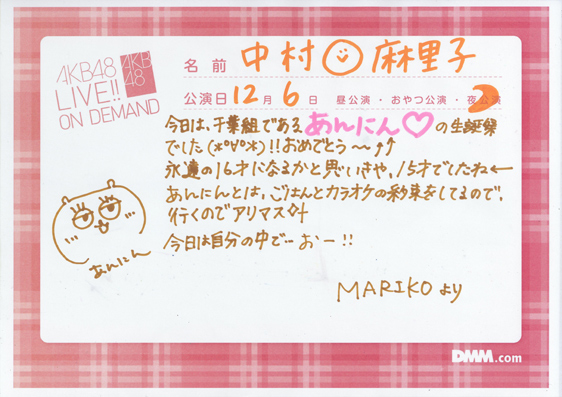 AKB48
LIVE!!
ON DEMAND
AKB
48
名前 中村 麻里子
公演日 12月 6日 昼公演・おやつ公演・夜公演
今日は、千葉組である あんにん♡の生誕祭
でした(*°∀°*)!!おめでとう〜↑↑
永遠の16才になるかと思いきや、15才でしたね←
あんにんとは、ごはんとカラオケの約束をしてるので、
行くのでアリマス
今日は自分の中でーおー!!
あんにん
MARIKOより
DMM.com